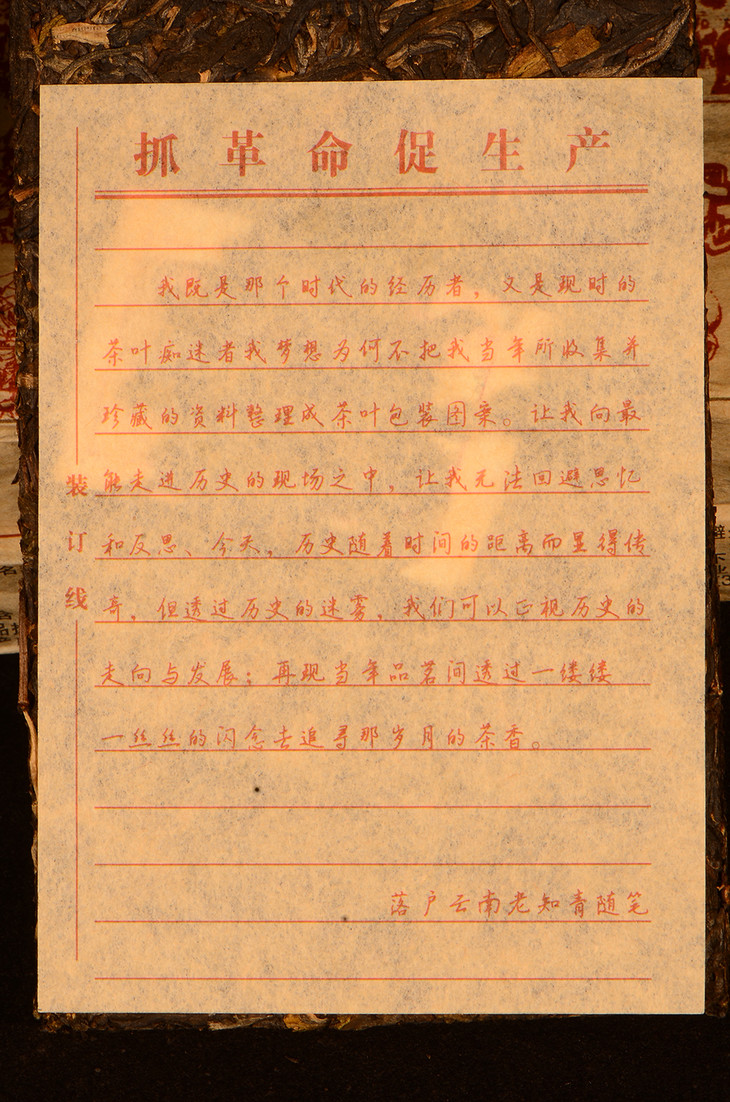 抓革命促生产
我既是那个时代的经历者，又是现时的
茶叶痴迷者我梦想为何不把我当年所收集并
珍藏的资料整理成茶叶包装图案。让我向最
能走进历史的现场之中，让我无法回避思忆
和反思、今天，历史随着时间的距离而显得传
奇，但透过历史的迷雾，我们可以正视历史的
走向与发展；再现当年品茗间透过一缕缕
一丝丝的闪念去追寻那岁月的茶香。
落户云南老知青随笔
装订线